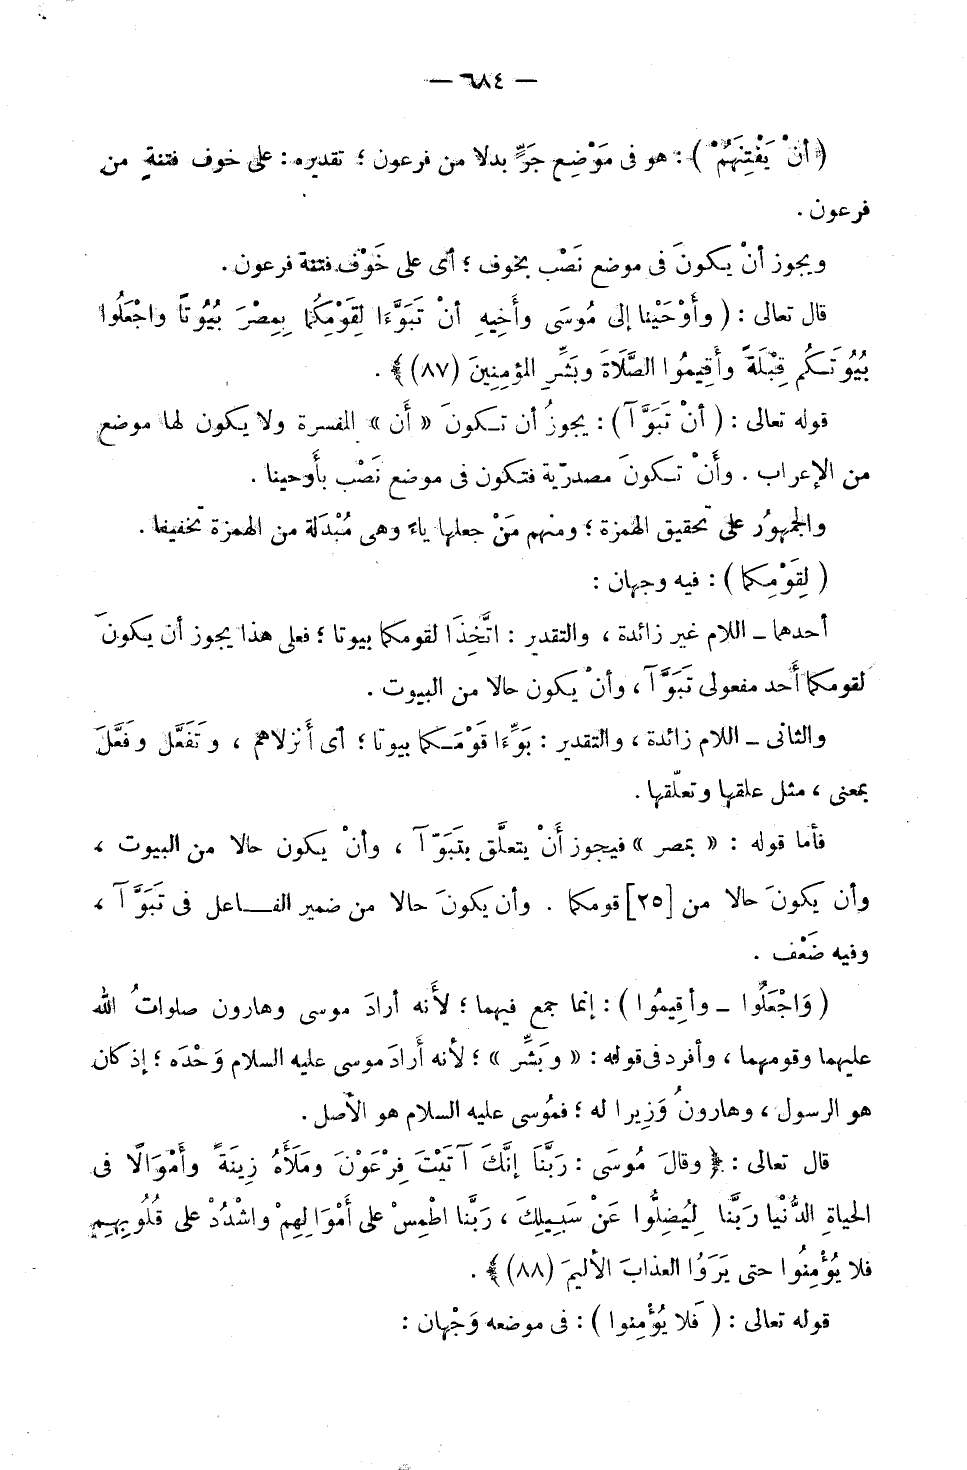 — ٦٨٤ —
﴿أنْ يَفْتِنَهُمْ﴾ : هو فى مَوْضِع جَرٍّ بدلا من فرعون ؛ تقديره : على خوف فتنةٍ من
فرعون .
ويجوز أنْ يكونَ فى موضع نَصْب بخوف ؛ أى على خَوْف فتنة فرعون .
قال تعالى : ( وأَوْحَيْنا إلى مُوسَى وأَخِيهِ أنْ تَبَوَّءَا لِقَوْمِكُمَا بِمِصْرَ بُيُوتاً واجْعَلُوا
بُيُوتَكُم قِبْلَةً وأَقِيمُوا الصَّلَاةَ وبَشِّرِ المؤمِنِينَ (٨٧) ﴾ .
قوله تعالى : ( أنْ تَبَوَّآ ) : يجوزُ أن تكونَ « أَن » المفسرة ولا يكون لها موضع
من الإعراب . وأَنْ تكونَ مصدريّة فتكون فى موضع نَصْب بأَوحينا .
والجمهورُ على تحقيق الهمزة ؛ ومنهم مَنْ جعلها ياءً وهى مُبْدَلة من الهمزة تخفيفا .
( لِقَوْمِكما ) : فيه وجهان :
أحدهما ــ اللام غير زائدة ، والتقدير : اتَّخِذَا لقومكما بيوتا ؛ فعلى هذا يجوز أن يكونَ
لقومكما أَحد مفعولى تَبَوَّآ ، وأنْ يكون حالا من البيوت .
والثانى ــ اللام زائدة ، والتقدير : بَوِّءَا قَوْمَكما بيوتا ؛ أى أَنزلاهم ، وتَفَعَّل وفَعَّلَ
بمعنى ، مثل علقها وتعلّقها .
فأما قوله : « بمصر » فيجوز أَنْ يتعلّق بتَبَوّآ ، وأنْ يكون حالا من البيوت ،
وأن يكونَ حالا من [٢٥] قومكما . وأن يكونَ حالا من ضمير الفاعل فى تَبَوَّآ ،
وفيه ضَعْف .
( وَاجْعَلُوا ــ وأقِيمُوا ) : إنما جمع فيهما ؛ لأَنه أرادَ موسى وهارون صلواتُ الله
عليهما وقومهما ، وأفرد فى قوله : « وبَشِّر » ؛ لأنه أَرادَ موسى عليه السلام وَحْدَه ؛ إذ كان
هو الرسول ، وهارونُ وَزِيرا له ؛ فمُوسى عليه السلام هو الأَصل .
قال تعالى : ﴿ وقالَ مُوسَى : رَبَّنَا إنَّكَ آتَيْتَ فِرْعَوْنَ ومَلَأَهُ زِينَةً وأَمْوَالًا فى
الحياةِ الدُّنْيا رَبَّنا لِيُضِلُّوا عَنْ سَبِيلِكَ ، رَبَّنا اطْمِسْ على أَمْوَالِهِمْ واشْدُدْ على قُلُوبِهِم
فلا يُؤْمِنُوا حتى يَرَوُا العذابَ الأليمَ (٨٨) ﴾ .
قوله تعالى : ( فَلا يُؤْمِنوا ) : فى موضعه وَجْهان :